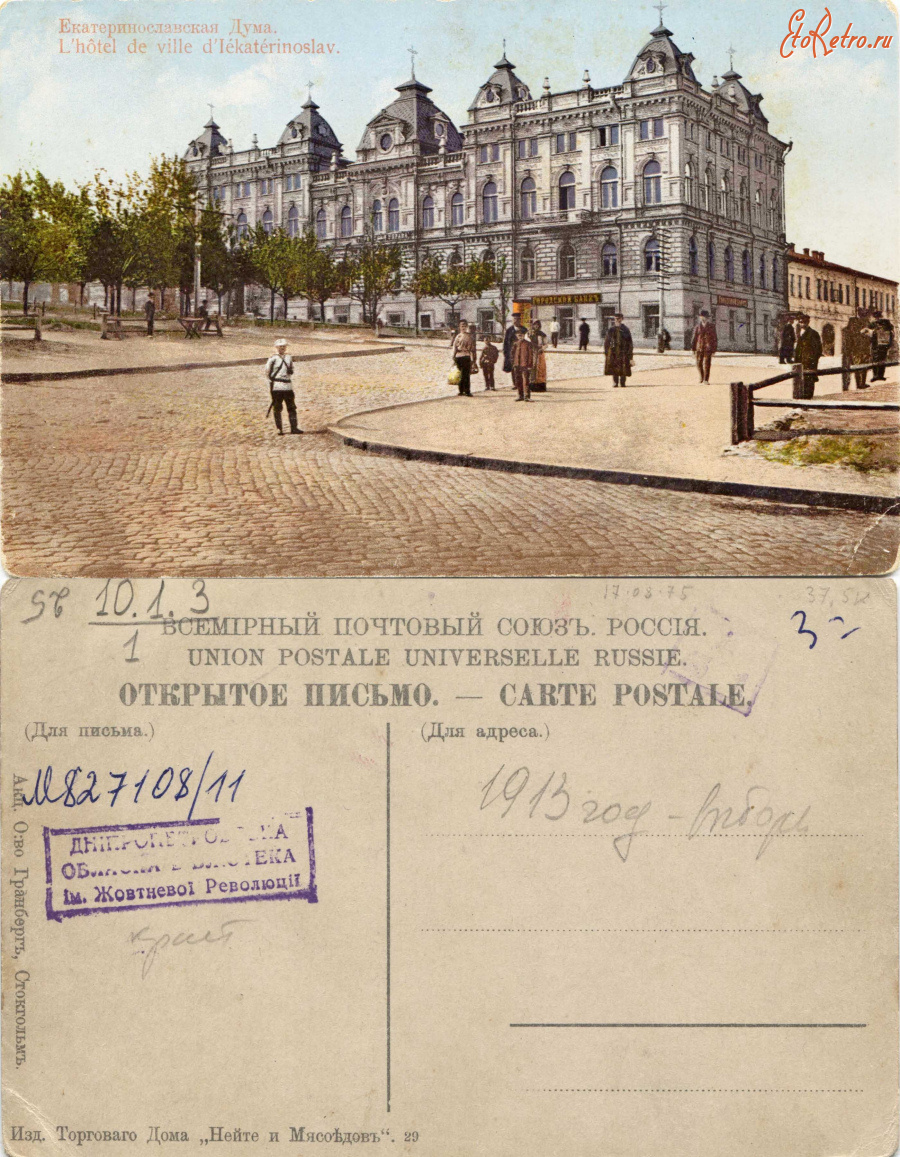 Екатеринославская Дума.
L'hôtel de ville d'Iékatérinoslav.
EtoRetro.ru
ГОРОДСКОЙ БАНКЪ
10.1.3
1
17.08.75
37,5к
3-
ВСЕМІРНЫЙ ПОЧТОВЫЙ СОЮЗЪ. РОССІЯ.
UNION POSTALE UNIVERSELLE RUSSIE.
ОТКРЫТОЕ ПИСЬМО. — CARTE POSTALE.
(Для письма.)
(Для адреса.)
М827108/11
1913 год -
ДНІПРОПЕТРОВСЬКА
ОБЛАСНА БІБЛІОТЕКА
ім. Жовтневої Революції
Акц. О:во Гранбергъ, Стокгольмъ.
Изд. Торговаго Дома „Нейте и Мясоѣдовъ“. 29